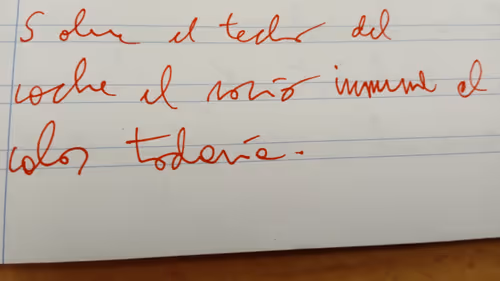 Sobre el techo del
coche el rocío inmune al
calor todavía.